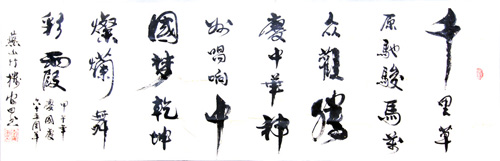 千里草
原馳駿馬萬
众歡騰
慶中華神
州唱响中
國梦乾坤
燦爛舞
彩霞
甲午年
慶國慶
六十五周年